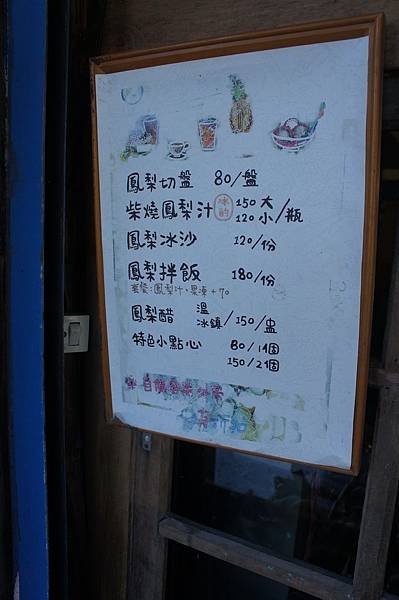 鳳梨切盤 80/盤
柴燒鳳梨汁 冰的 150大 120小/瓶
鳳梨冰沙 120/份
鳳梨拌飯 180/份
套餐:鳳梨汁、果凍+70
鳳梨醋 溫 冰鎮/150/盅
特色小點心 80/1個
150/2個